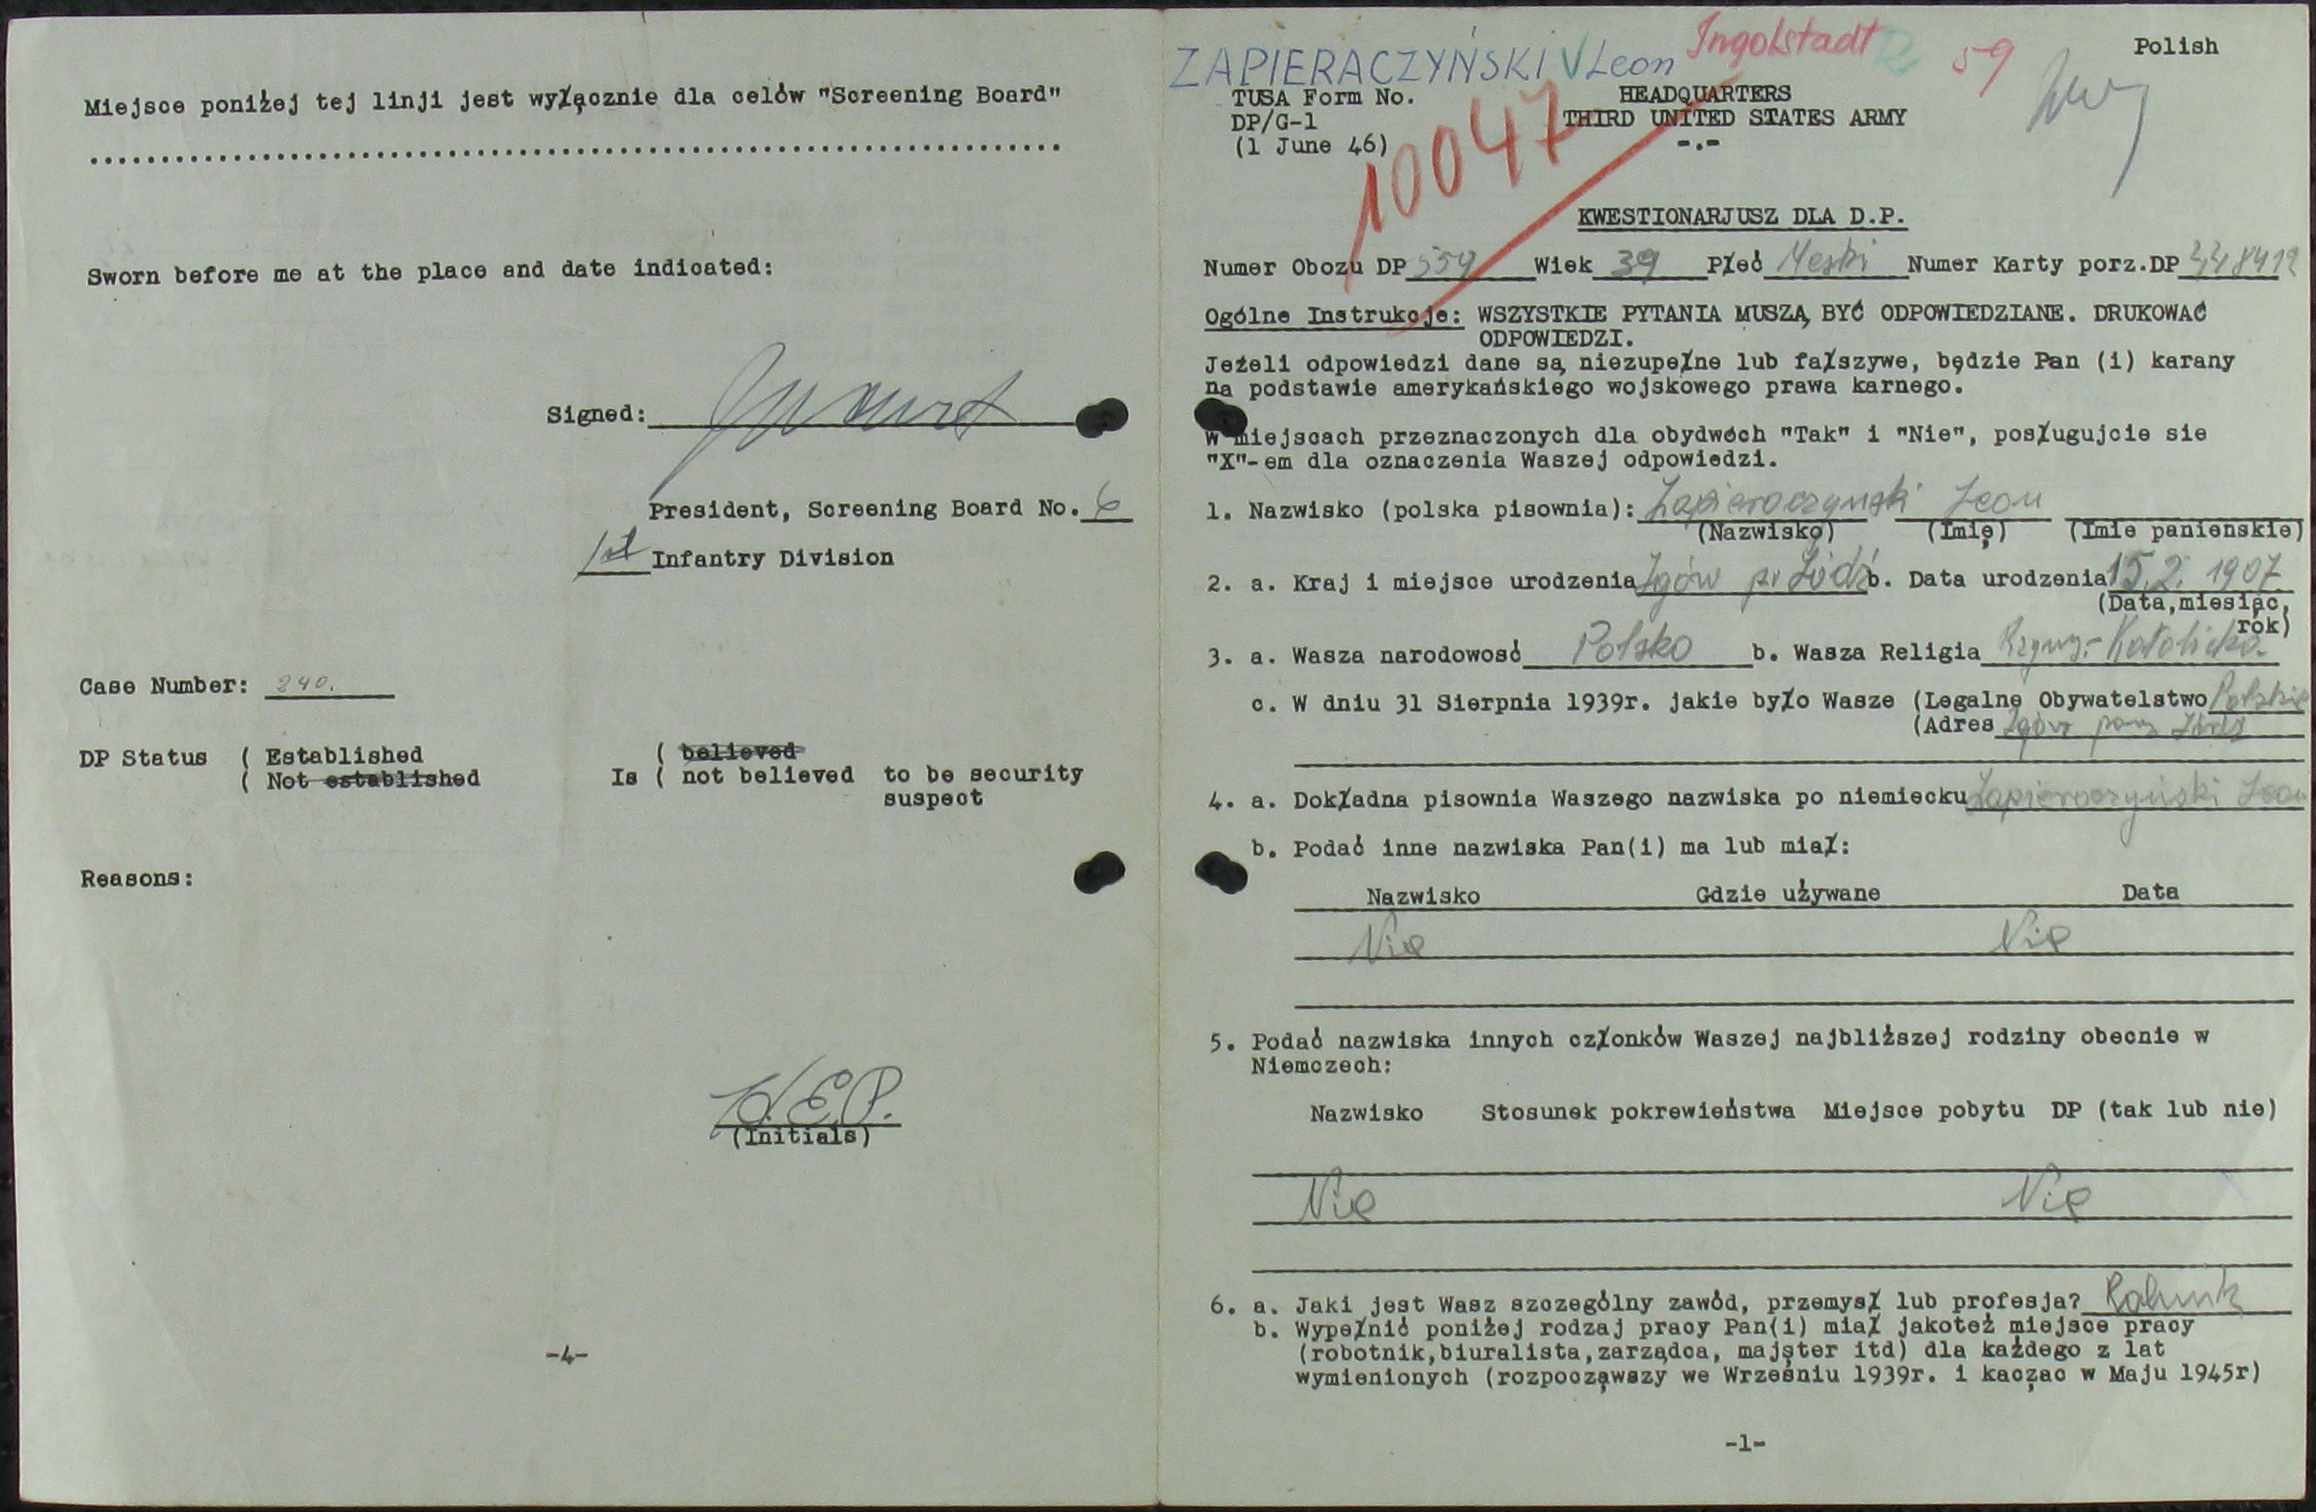 Miejsce poniżej tej linji jest wyłącznie dla celów "Screening Board"
Sworn before me at the place and date indicated:
Signed:
President, Screening Board No. 6
1st Infantry Division
Case Number: 240.
DP Status ( Established ( believed
( Not established Is ( not believed to be security
suspect
Reasons:
H.E.P.
(Initials)
-4-
ZAPIERACZYŃSKI V Leon Ingolstadt 59 Polish
TUSA Form No. HEADQUARTERS
DP/G-1 THIRD UNITED STATES ARMY
(1 June 46) -.-
10047
KWESTIONARJUSZ DLA D.P.
Numer Obozu DP 559 Wiek 39 Płeć Męski Numer Karty porz.DP
Ogólne Instrukcje: WSZYSTKIE PYTANIA MUSZĄ BYĆ ODPOWIEDZIANE. DRUKOWAĆ
ODPOWIEDZI.
Jeżeli odpowiedzi dane są niezupełne lub fałszywe, będzie Pan (i) karany
na podstawie amerykańskiego wojskowego prawa karnego.
W miejscach przeznaczonych dla obydwóch "Tak" i "Nie", posługujcie sie
"X"-em dla oznaczenia Waszej odpowiedzi.
1. Nazwisko (polska pisownia): Zapieraczyński Leon
(Nazwisko) (Imię) (Imie panienskie)
2. a. Kraj i miejsce urodzenia Zgów p. Łódź b. Data urodzenia 15.2.1907
(Data,miesiąc,
rok)
3. a. Wasza narodowosć Polsko b. Wasza Religia Rzyms-Katolicka
c. W dniu 31 Sierpnia 1939r. jakie było Wasze (Legalne Obywatelstwo Polskie
(Adres Zgów Łódź
4. a. Dokładna pisownia Waszego nazwiska po niemiecku Zapieraczyński Leon
b. Podać inne nazwiska Pan(i) ma lub miał:
Nazwisko Gdzie używane Data
Nie Nie
5. Podać nazwiska innych członków Waszej najbliższej rodziny obecnie w
Niemczech:
Nazwisko Stosunek pokrewieństwa Miejsce pobytu DP (tak lub nie)
Nie Nie
6. a. Jaki jest Wasz szczególny zawód, przemysł lub profesja? Rolnik
b. Wypełnić poniżej rodzaj pracy Pan(i) miał jakoteż miejsce pracy
(robotnik,biuralista,zarządca, majster itd) dla każdego z lat
wymienionych (rozpocząwszy we Wrześniu 1939r. i kacząc w Maju 1945r)
-1-